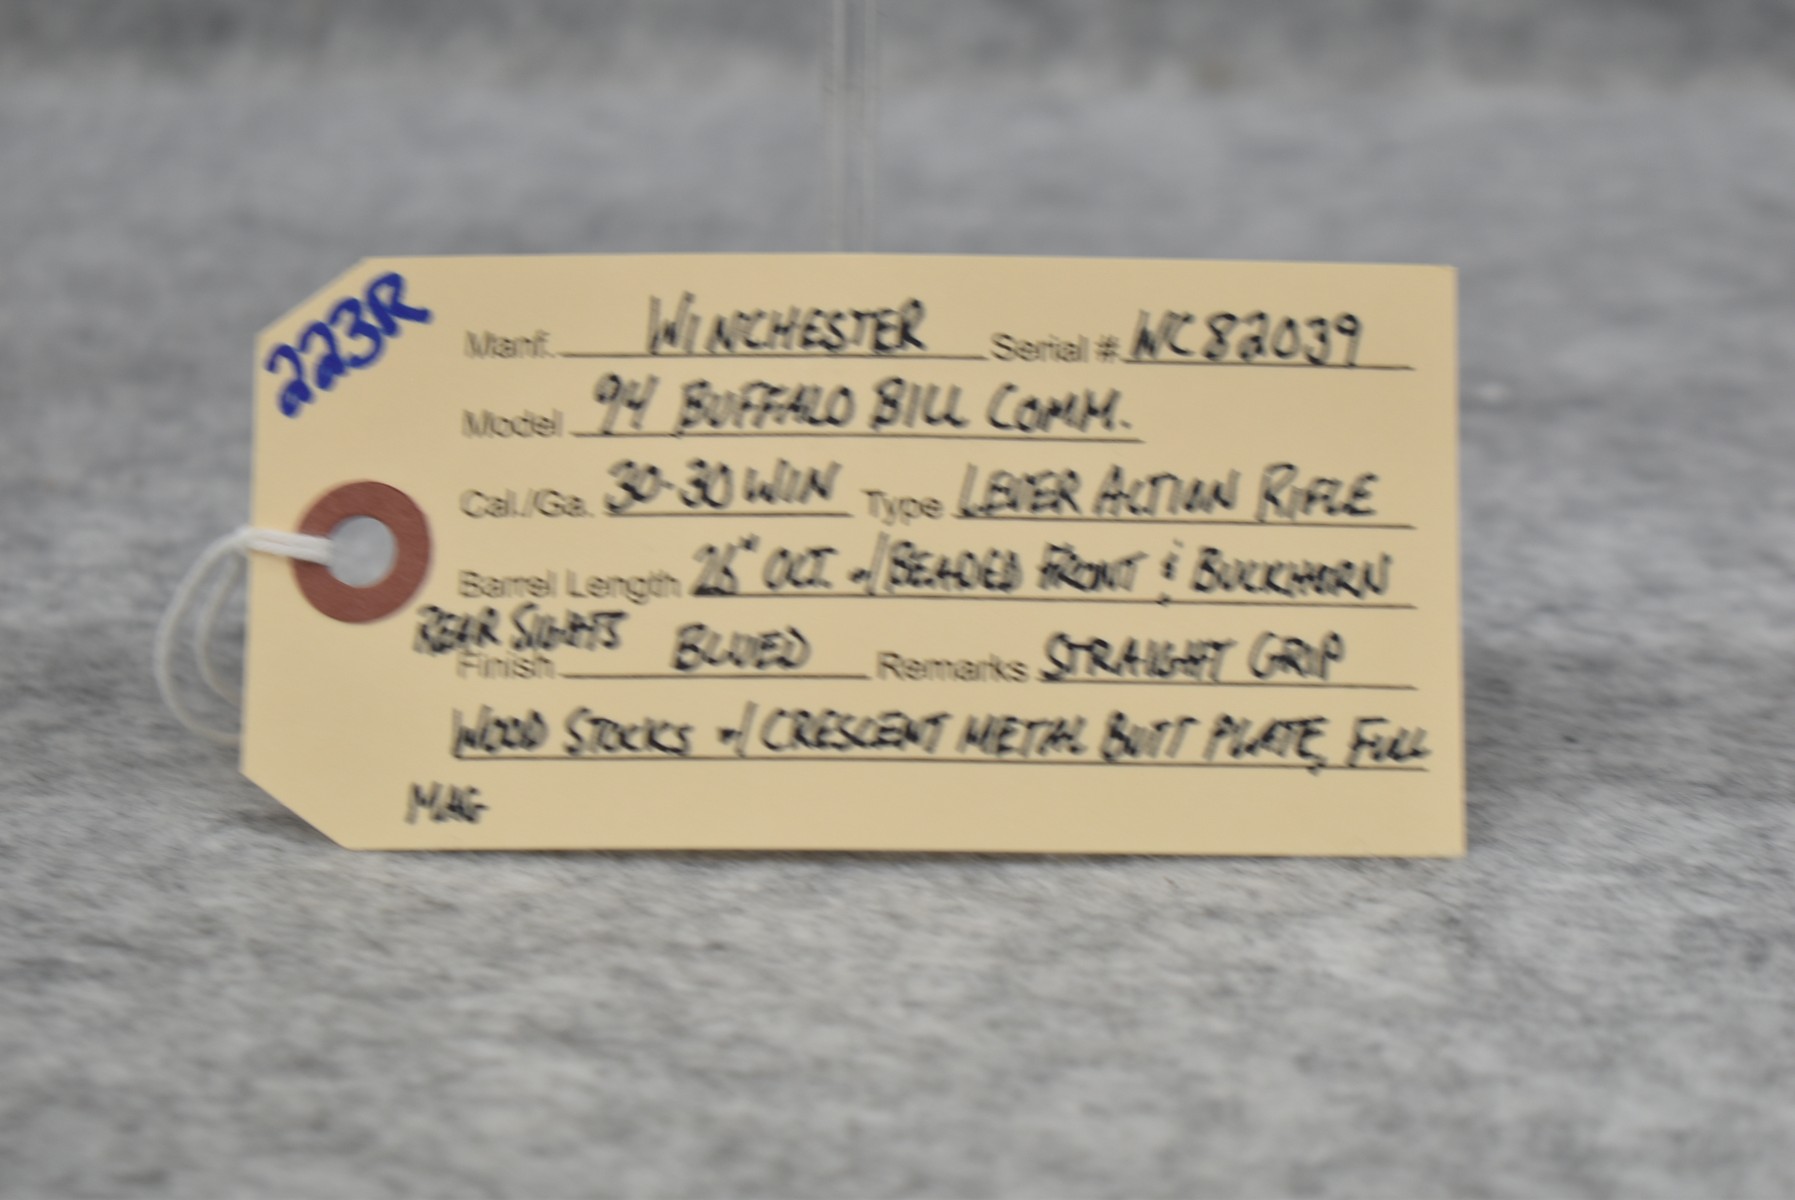 223R
Manf. WINCHESTER Serial # WC82039
Model 94 BUFFALO BILL COMM.
Cal./Ga. 30-30 WIN Type LEVER ACTION RIFLE
Barrel Length 26" OCT. w/BEADED FRONT & BUCKHORN
REAR SIGHTS
Finish BLUED Remarks STRAIGHT GRIP
WOOD STOCKS w/ CRESCENT METAL BUTT PLATE, FULL
MAG